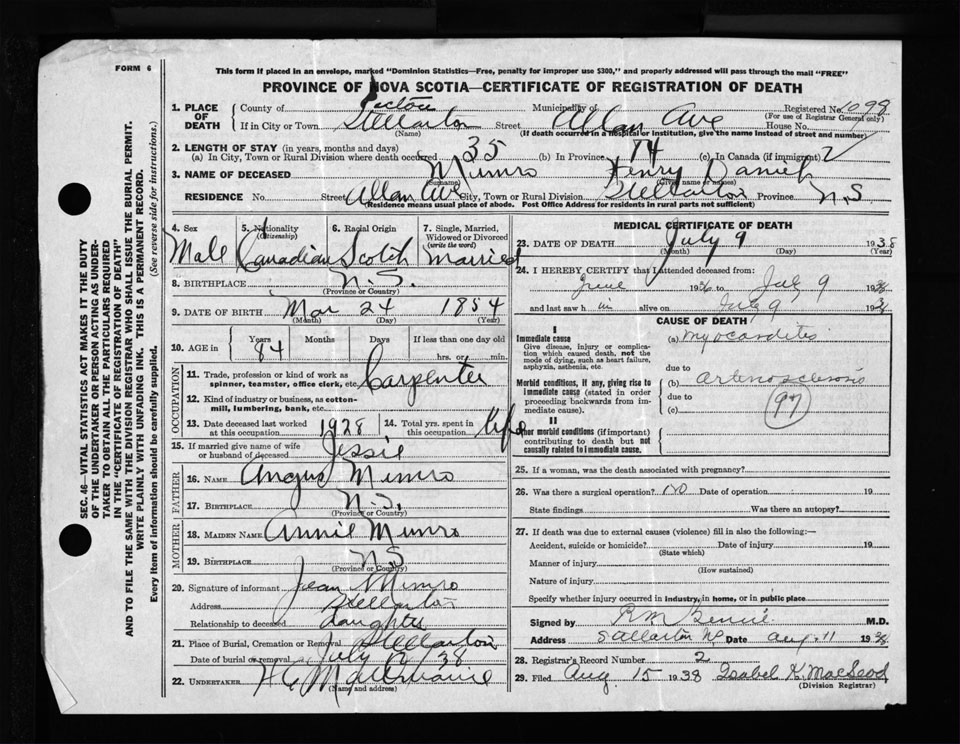 FORM 6
This form if placed in an envelope, marked "Dominion Statistics—Free, penalty for improper use $300," and properly addressed will pass through the mail "FREE"
PROVINCE OF NOVA SCOTIA—CERTIFICATE OF REGISTRATION OF DEATH
1. PLACE OF DEATH { County of Pictou Municipality of Registered No. 1099
(For use of Registrar General only)
If in City or Town Stellarton Street Allan Ave House No.
(Name) (If death occurred in a hospital or institution, give the name instead of street and number)
2. LENGTH OF STAY (in years, months and days)
(a) In City, Town or Rural Division where death occurred 35 (b) In Province (c) In Canada (if immigrant)
3. NAME OF DECEASED Munro Henry Daniel
(Surname) (Given name or names)
RESIDENCE No. Street Allan Ave City, Town or Rural Division Stellarton Province N.S.
(Residence means usual place of abode. Post Office Address for residents in rural parts not sufficient)
4. Sex Male
5. Nationality (Citizenship) Canadian
6. Racial Origin Scotch
7. Single, Married, Widowed or Divorced (write the word) Married
8. BIRTHPLACE N.S.
(Province or Country)
9. DATE OF BIRTH Mar 24 1854
(Month) (Day) (Year)
10. AGE in Years Months Days If less than one day old
84 hrs. or min.
OCCUPATION
11. Trade, profession or kind of work as spinner, teamster, office clerk, etc. Carpenter
12. Kind of industry or business, as cotton-mill, lumbering, bank, etc.
13. Date deceased last worked at this occupation 1928
14. Total yrs. spent in this occupation life
15. If married give name of wife or husband of deceased Jessie
FATHER
16. NAME Angus Munro
17. BIRTHPLACE N.S.
(Province or Country)
MOTHER
18. MAIDEN NAME Annie Munro
19. BIRTHPLACE N.S
(Province or Country)
20. Signature of informant Jean Munro
Address Stellarton
Relationship to deceased daughter
21. Place of Burial, Cremation or Removal Stellarton
Date of burial or removal July 38
22. UNDERTAKER
(Name and address)
MEDICAL CERTIFICATE OF DEATH
23. DATE OF DEATH July 9 1938
(Month) (Day) (Year)
24. I HEREBY CERTIFY that I attended deceased from:
June 1936 to July 9 1938
and last saw h im alive on July 9 1938
CAUSE OF DEATH
I
Immediate cause
Give disease, injury or complication which caused death, not the mode of dying, such as heart failure, asphyxia, asthenia, etc.
(a) myocarditis
due to
Morbid conditions, if any, giving rise to immediate cause (stated in order proceeding backwards from immediate cause).
(b) arteriosclerosis
due to
(c) 97
II
Other morbid conditions (if important) contributing to death but not causally related to immediate cause.
25. If a woman, was the death associated with pregnancy?
26. Was there a surgical operation? no Date of operation 19
State findings Was there an autopsy?
27. If death was due to external causes (violence) fill in also the following:—
Accident, suicide or homicide? Date of injury 19
(State which)
Manner of injury
(How sustained)
Nature of injury
Specify whether injury occurred in industry, in home, or in public place
Signed by M.D.
Address Stellarton NS Date Aug 11 1938
28. Registrar's Record Number 2
29. Filed Aug 15 1938 Isabel K. MacLeod
(Division Registrar)
SEC. 46—VITAL STATISTICS ACT MAKES IT THE DUTY
OF THE UNDERTAKER OR PERSON ACTING AS UNDER-
TAKER TO OBTAIN ALL THE PARTICULARS REQUIRED
IN THE "CERTIFICATE OF REGISTRATION OF DEATH"
AND TO FILE THE SAME WITH THE DIVISION REGISTRAR WHO SHALL ISSUE THE BURIAL PERMIT.
WRITE PLAINLY WITH UNFADING INK. THIS IS A PERMANENT RECORD.
Every item of information should be carefully supplied. (See reverse side for instructions.)